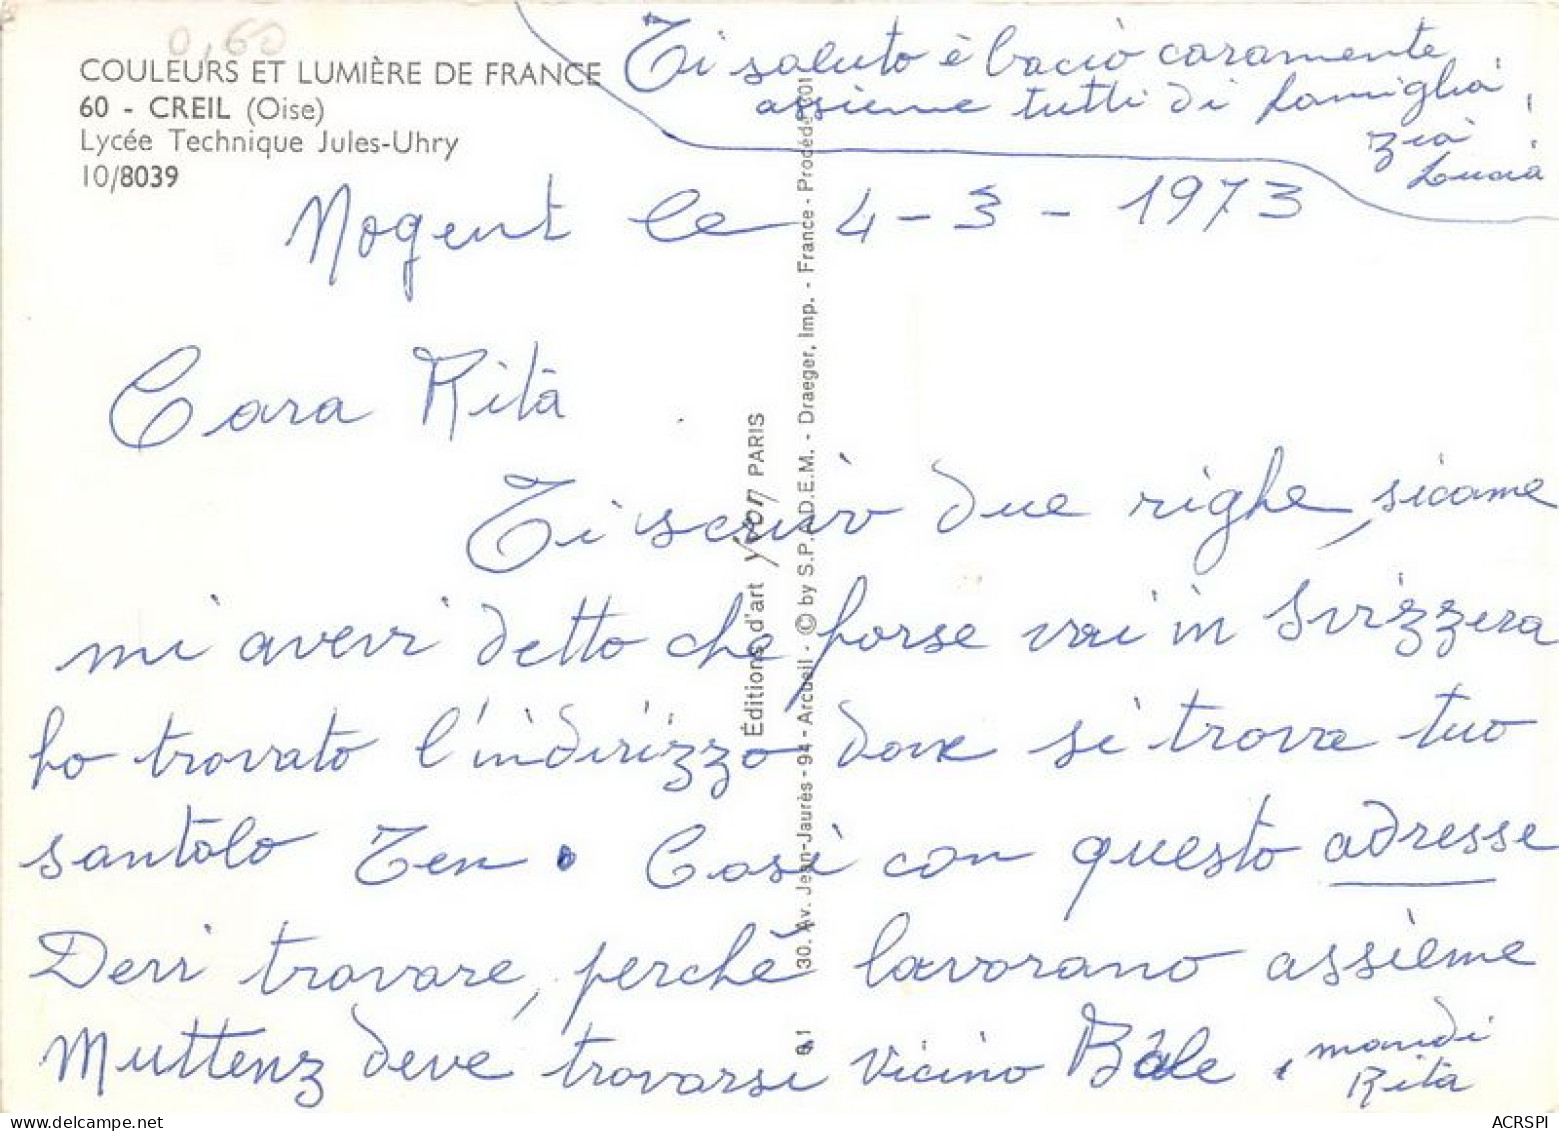 0,60
COULEURS ET LUMIÈRE DE FRANCE
60 - CREIL (Oise)
Lycée Technique Jules-Uhry
10/8039
Ti saluto è baciò caramente
assieme tutti di famiglia,
zia
Lucia
Nogent le 4-3-1973
Cara Rità
Ti scrivo due righe, sicome
mi avevi detto che forse vai in Svizzera
ho trovato l'indirizzo dove si trova tuo
santolo Zen. Così con questo adresse
Devi trovare, perchè lavorano assieme
Muttenz deve trovarsi vicino Bâle, mandi
Rita
Éditions d'art yvon PARIS
30, Av. Jean-Jaurès - 94 - Arcueil - © by S.P.A.D.E.M. - Draeger, Imp. - France - Procédé
ACRSPI